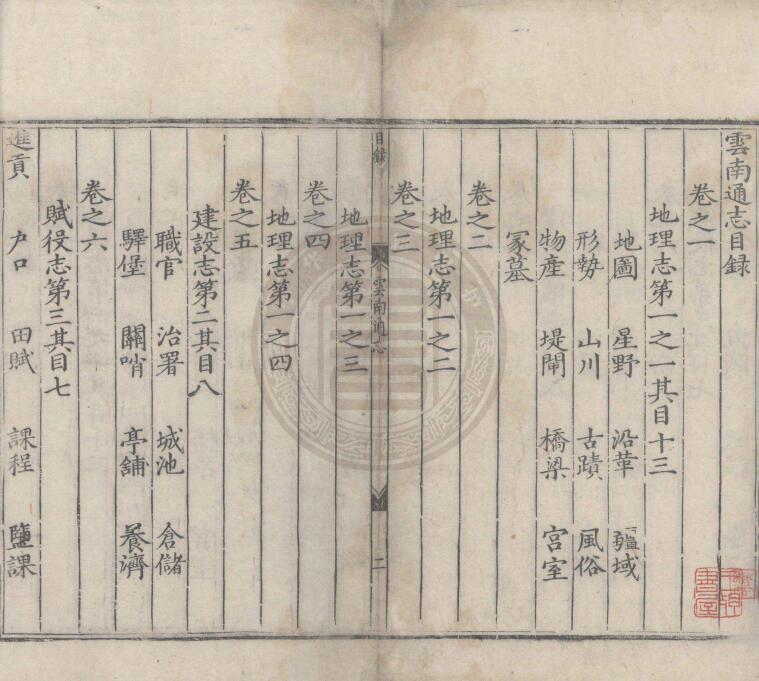 雲南通志目録
卷之一
地理志第一之一其目十三
地圖 星野 沿革 疆域
形勢 山川 古蹟 風俗
物產 堤閘 橋梁 宫室
冢墓
卷之二
地理志第一之二
卷之三
目録
雲南通志
二
地理志第一之三
卷之四
地理志第一之四
卷之五
建設志第二其目八
職官 治署 城池 倉儲
驛堡 關哨 亭舖 養濟
卷之六
賦役志第三其目七
進貢 户口 田賦 課程 鹽課